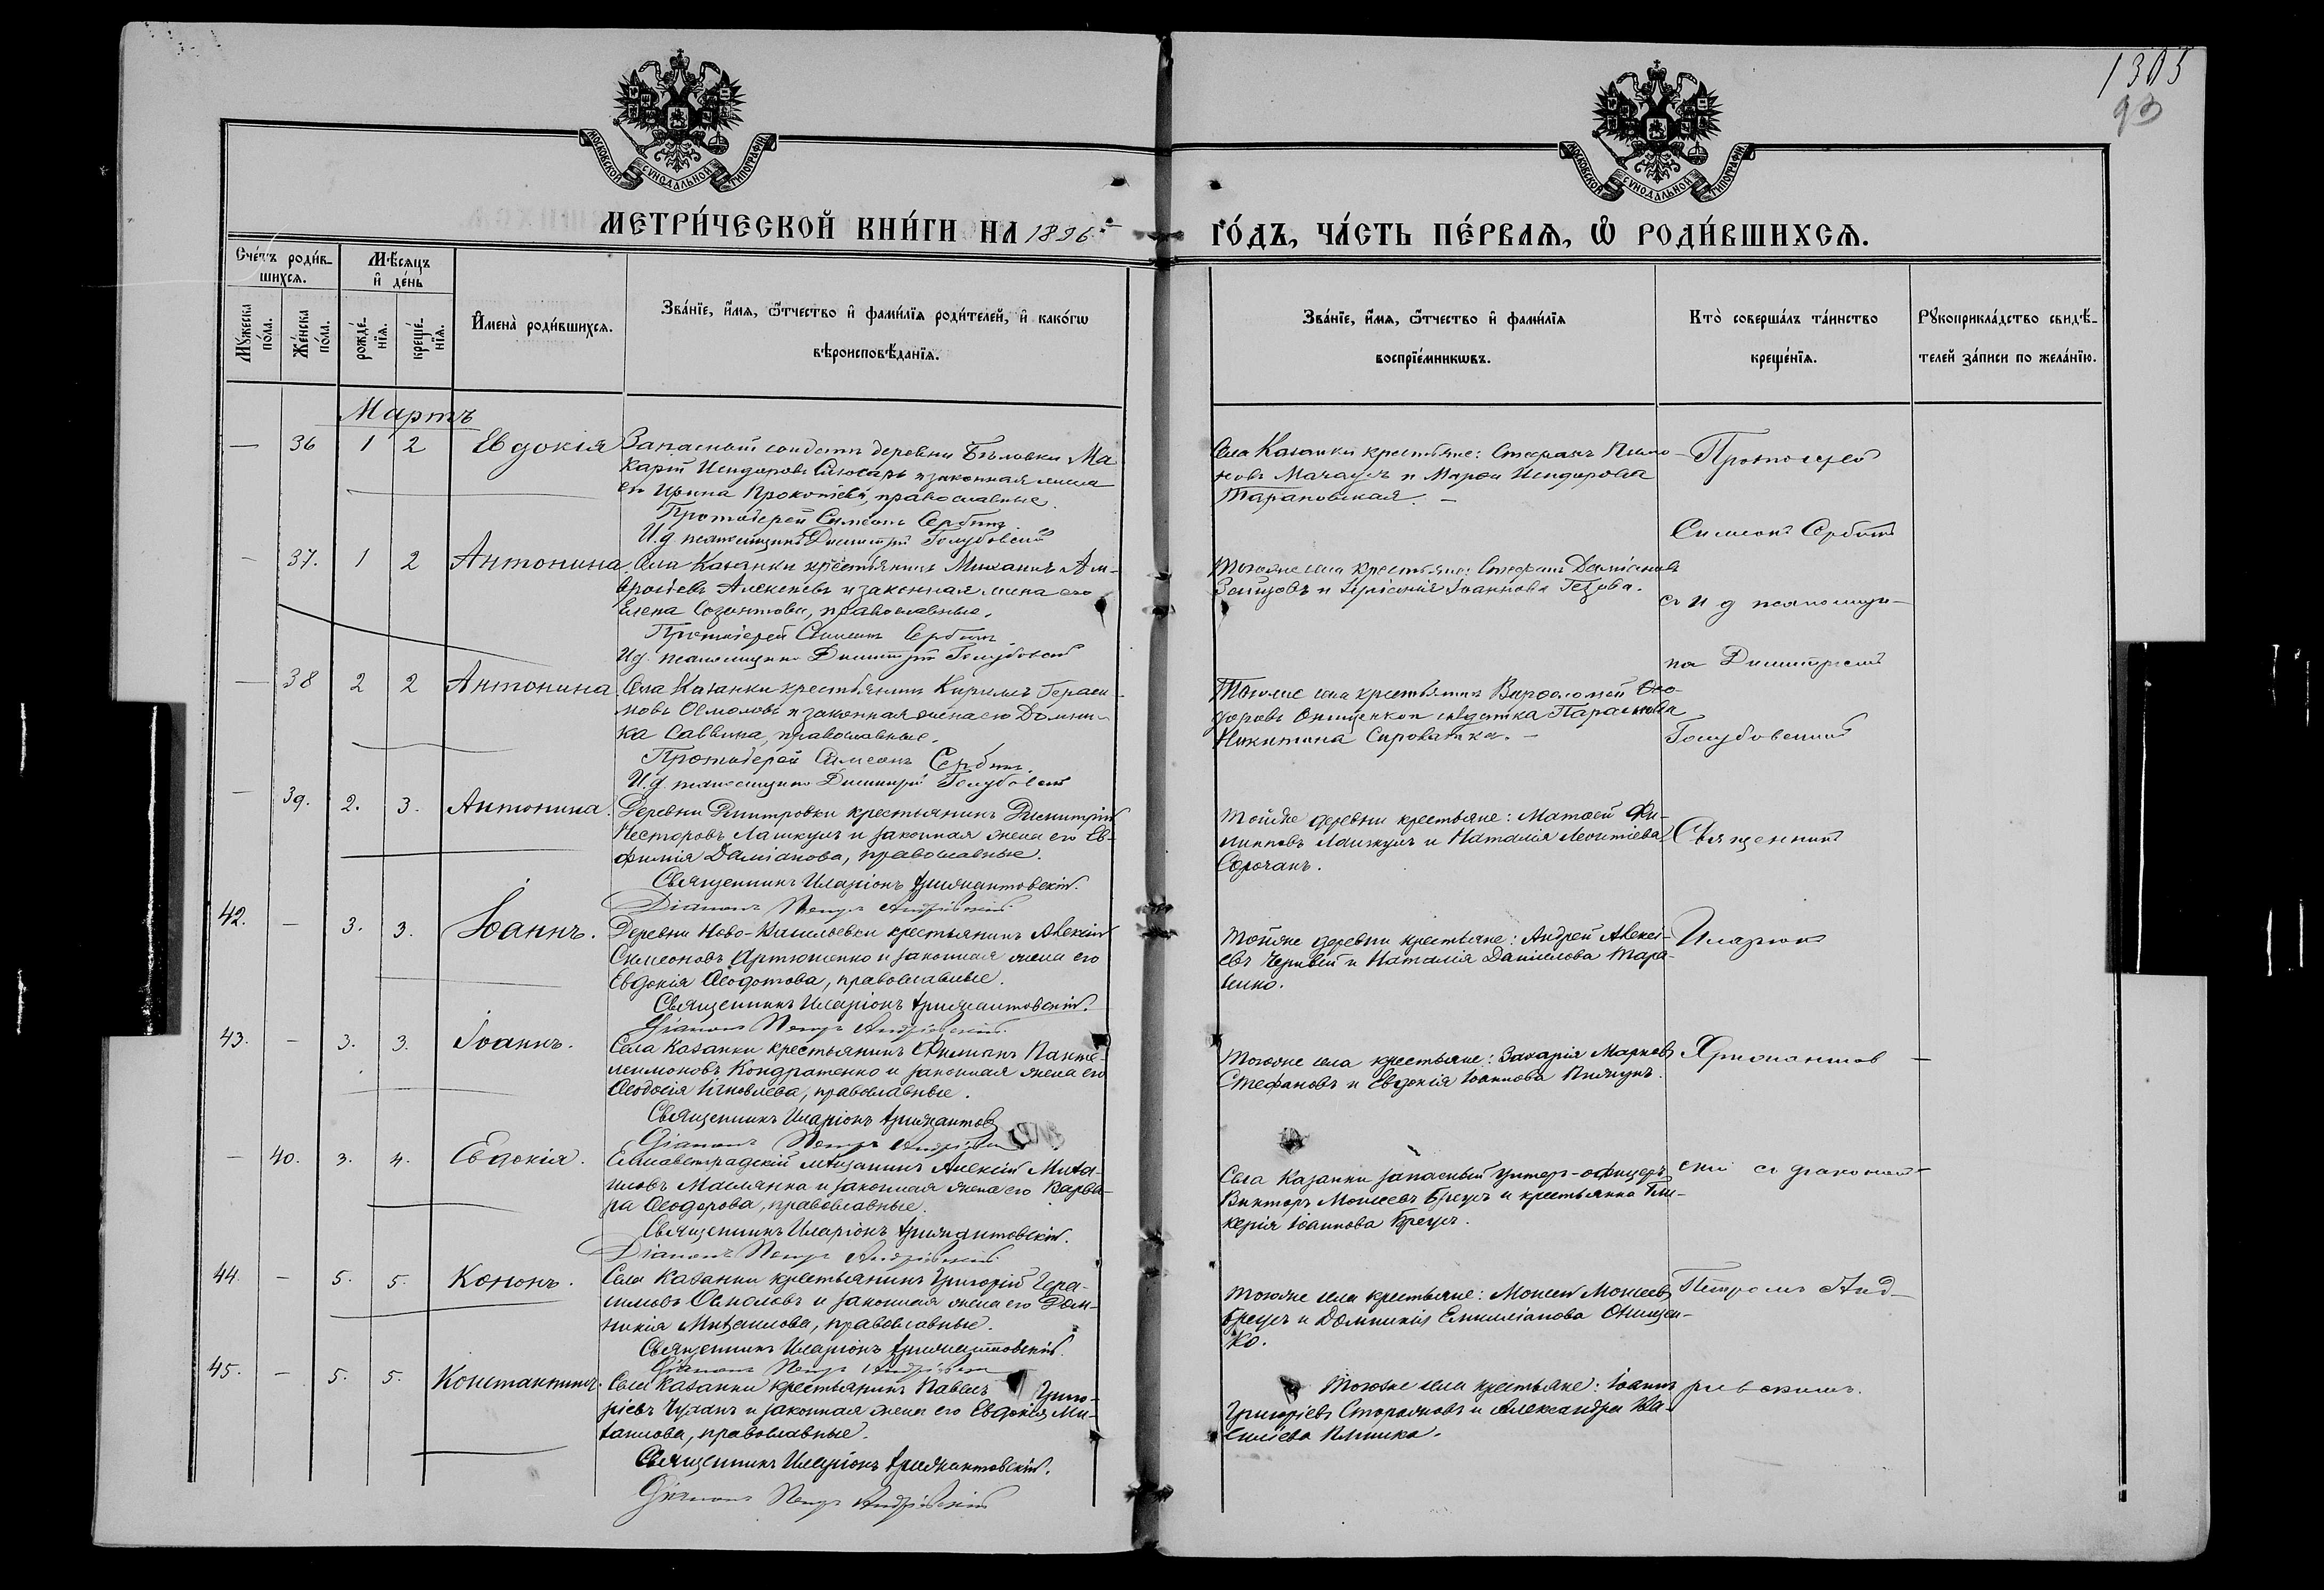 1303
93
МОСКОВСКОЙ СѴНОДАЛЬНОЙ ТИПОГРАФІИ
МОСКОВСКОЙ СѴНОДАЛЬНОЙ ТИПОГРАФІИ
МЕТРИ́ЧЕСКОЙ КНИ́ГИ НА 1896 ГО́ДЪ, ЧА́СТЬ ПЕ́РВАѦ, Ѡ РОДИ́ВШИХСѦ.
Сче́тъ роди́в-
шихсѧ.
Мѣ́сѧцъ
и҆ де́нь
Мꙋ́жеска
по́ла.
Же́нска
по́ла.
рожде́-
нїѧ.
креще́-
нїѧ.
И҆мена̀ роди́вшихсѧ.
Зва́нїе, и҆́мѧ, ѻ҆́тчество и҆ фами́лїѧ роди́телей, и҆ како́гѡ
вѣроисповѣ́данїѧ.
Зва́нїе, и҆́мѧ, ѻ҆́тчество и҆ фами́лїѧ
воспрїе́мникѡвъ.
Кто̀ соверша́лъ та́инство
креще́нїѧ.
Рꙋкоприкла́дство свидѣ́-
телей за́писи по жела́нїю.
Мартъ
— 36 1 2 Евдокія Запасный солдатъ деревни Бѣловки Ма-
карій Исидоровъ Слюсарь и законная жена
его Ирина Прокопіева, православные.
Протоіерей Симеонъ Сербинъ
И.д. псаломщика Димитрій Голубовскій
Села Казанки крестьяне: Стефанъ
новъ Мачула и Марѳа Исидорова
Тарановская. —
Протоіерей
Симеонъ Сербинъ
— 37. 1 2 Антонина Села Казанки крестьянинъ Михаилъ Ам-
вросіевъ Алексѣевъ и законная жена его
Елена Созонтова, православные.
Протоіерей Симеонъ Сербинъ
И.д. псаломщика Димитрій Голубовскій
Тогоже села крестьяне: Стефанъ Даміановъ
Зайцовъ и Іоаннова
съ и д псаломщи-
ка Димитріемъ
— 38 2 2 Антонина Села Казанки крестьянинъ Кирилъ Гераси-
мовъ Осмоловъ и законная жена его Домни-
ка Саввина, православные.
Протоіерей Симеонъ Сербинъ
И.д. псаломщика Димитрій Голубовскій
Тогоже села крестьянинъ Варѳоломей Ѳео-
доровъ Онищенко и дѣвка Параскева
Никитина Сироватка. —
Голубовскимъ
— 39. 2. 3. Антонина. Деревни Дмитровки крестьянинъ Димитрій
Несторовъ Лашкулъ и законная жена его Ев-
фимія Даміанова, православные.
Священникъ Иларіонъ Хрисчантовскій.
Діаконъ Петръ Андріевскій
Тойже деревни крестьяне: Матѳей Фи-
липповъ Лашкулъ и Наталія Леонтіева
Сорочанъ.
Священникъ
42. — 3. 3. Іоаннъ. Деревни Ново-Васильевки крестьянинъ Алексій
Симеоновъ Артюшенко и законная жена его
Евдокія Ѳеодотова, православные.
Священникъ Иларіонъ Хрисчантовскій.
Діаконъ Петръ Андріевскій
Тойже деревни крестьяне: Андрей Алексі-
евъ и Наталія Даніилова Тара-
сенко.
Иларіонъ
43. — 3. 3. Іоаннъ. Села Казанки крестьянинъ Филиппъ Панте-
леимоновъ Кондратенко и законная жена его
Ѳеодосія Яковлева, православные.
Священникъ Иларіонъ
Діаконъ Петръ
Тогоже села крестьяне: Захарія Марковъ
Стефановъ и Евдокія Іоаннова
— 40. 3. 4. Евдокія. Елисаветградскій мѣщанинъ Алексій Миха-
иловъ Маслянко и законная жена его Варва-
ра Ѳеодорова, православные.
Священникъ Иларіонъ Хрисчантовскій.
Діаконъ Петръ Андріевскій
Села Казанки запасный унтеръ-офицеръ
Викторъ Моисеевъ Бреусъ и крестьянка Гли-
керія Іоаннова Бреусъ.
скій съ діакономъ
44. — 5. 5. Кононъ. Села Казанки крестьянинъ Григорій Гера-
симовъ Осмоловъ и законная жена его Дом-
никія Михаилова, православные.
Священникъ Иларіонъ Хрисчантовскій.
Діаконъ Петръ Андріевскій
Тогоже села крестьяне: Моисей Моисеевъ
Бреусъ и Домникія Емиліанова Онищен-
ко.
Петромъ Анд-
45. — 5. 5. Константинъ. Села Казанки крестьянинъ Павелъ Григо-
ріевъ и законная жена его Евдокія Ми-
хаилова, православные.
Священникъ Иларіонъ Хрисчантовскій.
Діаконъ Петръ Андріевскій
Тогоже села крестьяне: Іоаннъ
Григоріевъ и Александра Ва-
силіева
ріевскимъ.